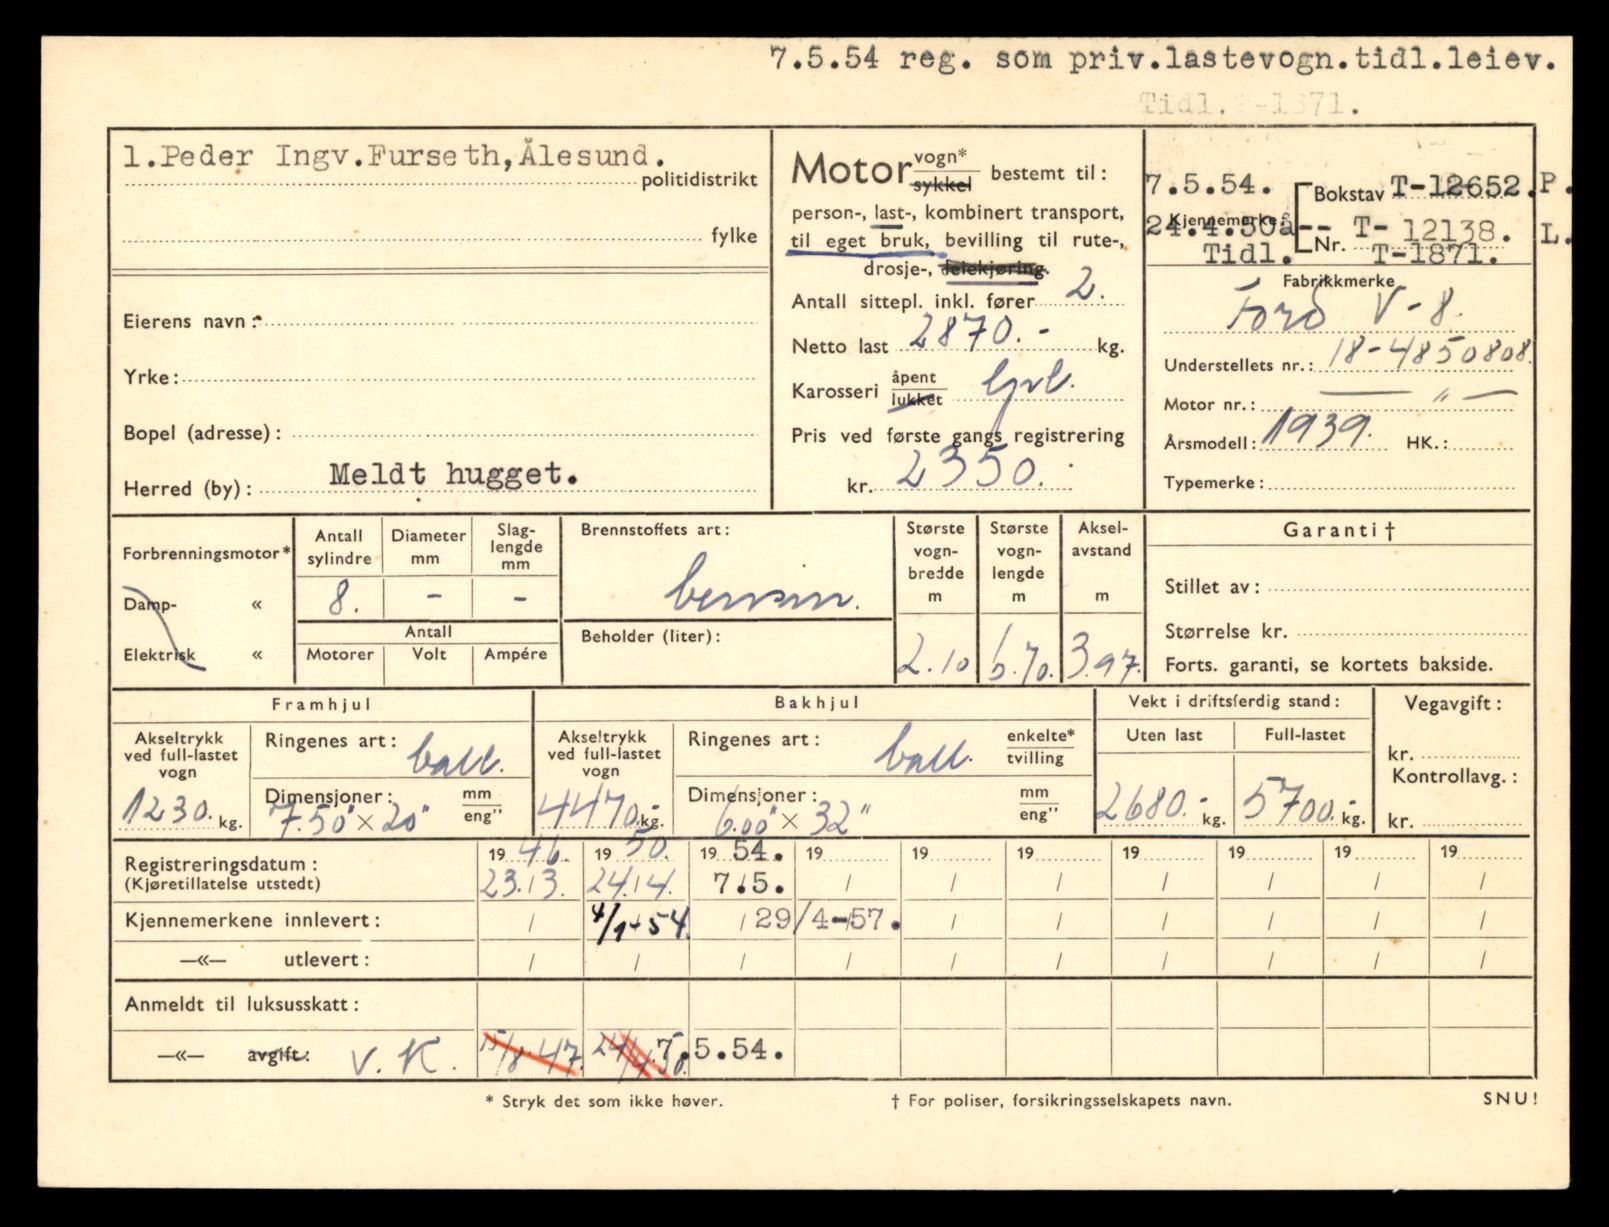 7.5.54 reg. som priv.lastevogn.tidl.leiev.
Tidl.T-1871.
1.Peder Ingv.Furseth,Ålesund.
politidistrikt
fylke
Eierens navn :
Yrke :
Bopel (adresse) :
Herred (by) : Meldt hugget.
Motor vogn* sykkel bestemt til :
person-, last-, kombinert transport,
til eget bruk, bevilling til rute-,
drosje-, leiekjøring.
Antall sittepl. inkl. fører 2.
Netto last 2870.- kg.
Karosseri åpent lukket
Pris ved første gangs registrering
kr. 2350.-
7.5.54. Bokstav T-12652. P.
24.4.50å-- T- 12138. L.
Kjennemerke Nr.
Tidl. T-1871.
Fabrikkmerke
Ford V-8.
Understellets nr. : 18-4850808.
Motor nr. : — " —
Årsmodell : 1939. HK. :
Typemerke :
Forbrenningsmotor*
Damp- «
Elektrisk «
Antall sylindre Diameter mm Slag-lengde mm
8. - -
Antall
Motorer Volt Ampére
Brennstoffets art :
bensin.
Beholder (liter) :
Største vogn-bredde m Største vogn-lengde m Aksel-avstand m
2.10 6.70. 3.97.
Garanti †
Stillet av :
Størrelse kr.
Forts. garanti, se kortets bakside.
Framhjul
Akseltrykk ved full-lastet vogn
1230. kg.
Ringenes art : ball.
Dimensjoner : mm eng"
7.50" × 20"
Bakhjul
Akseltrykk ved full-lastet vogn
4470.- kg.
Ringenes art : ball. enkelte* tvilling
Dimensjoner : mm eng"
6.00" × 32"
Vekt i driftsferdig stand :
Uten last Full-lastet
2680.- kg. 5700.- kg.
Vegavgift :
kr.
Kontrollavg. :
kr.
19 46. 19 50. 19 54. 19 19 19 19 19 19 19
Registreringsdatum :
(Kjøretillatelse utstedt) 23./3. 24./4. 7.5. / / / / / / /
Kjennemerkene innlevert : / 4/1-54. / 29/4-57. / / / / / /
—«— utlevert : / / / / / / / / / /
Anmeldt til luksusskatt :
—«— avgift : V. K. 15/8-47. 24/4 50. 7.5.54.
* Stryk det som ikke høver.
† For poliser, forsikringsselskapets navn.
SNU!